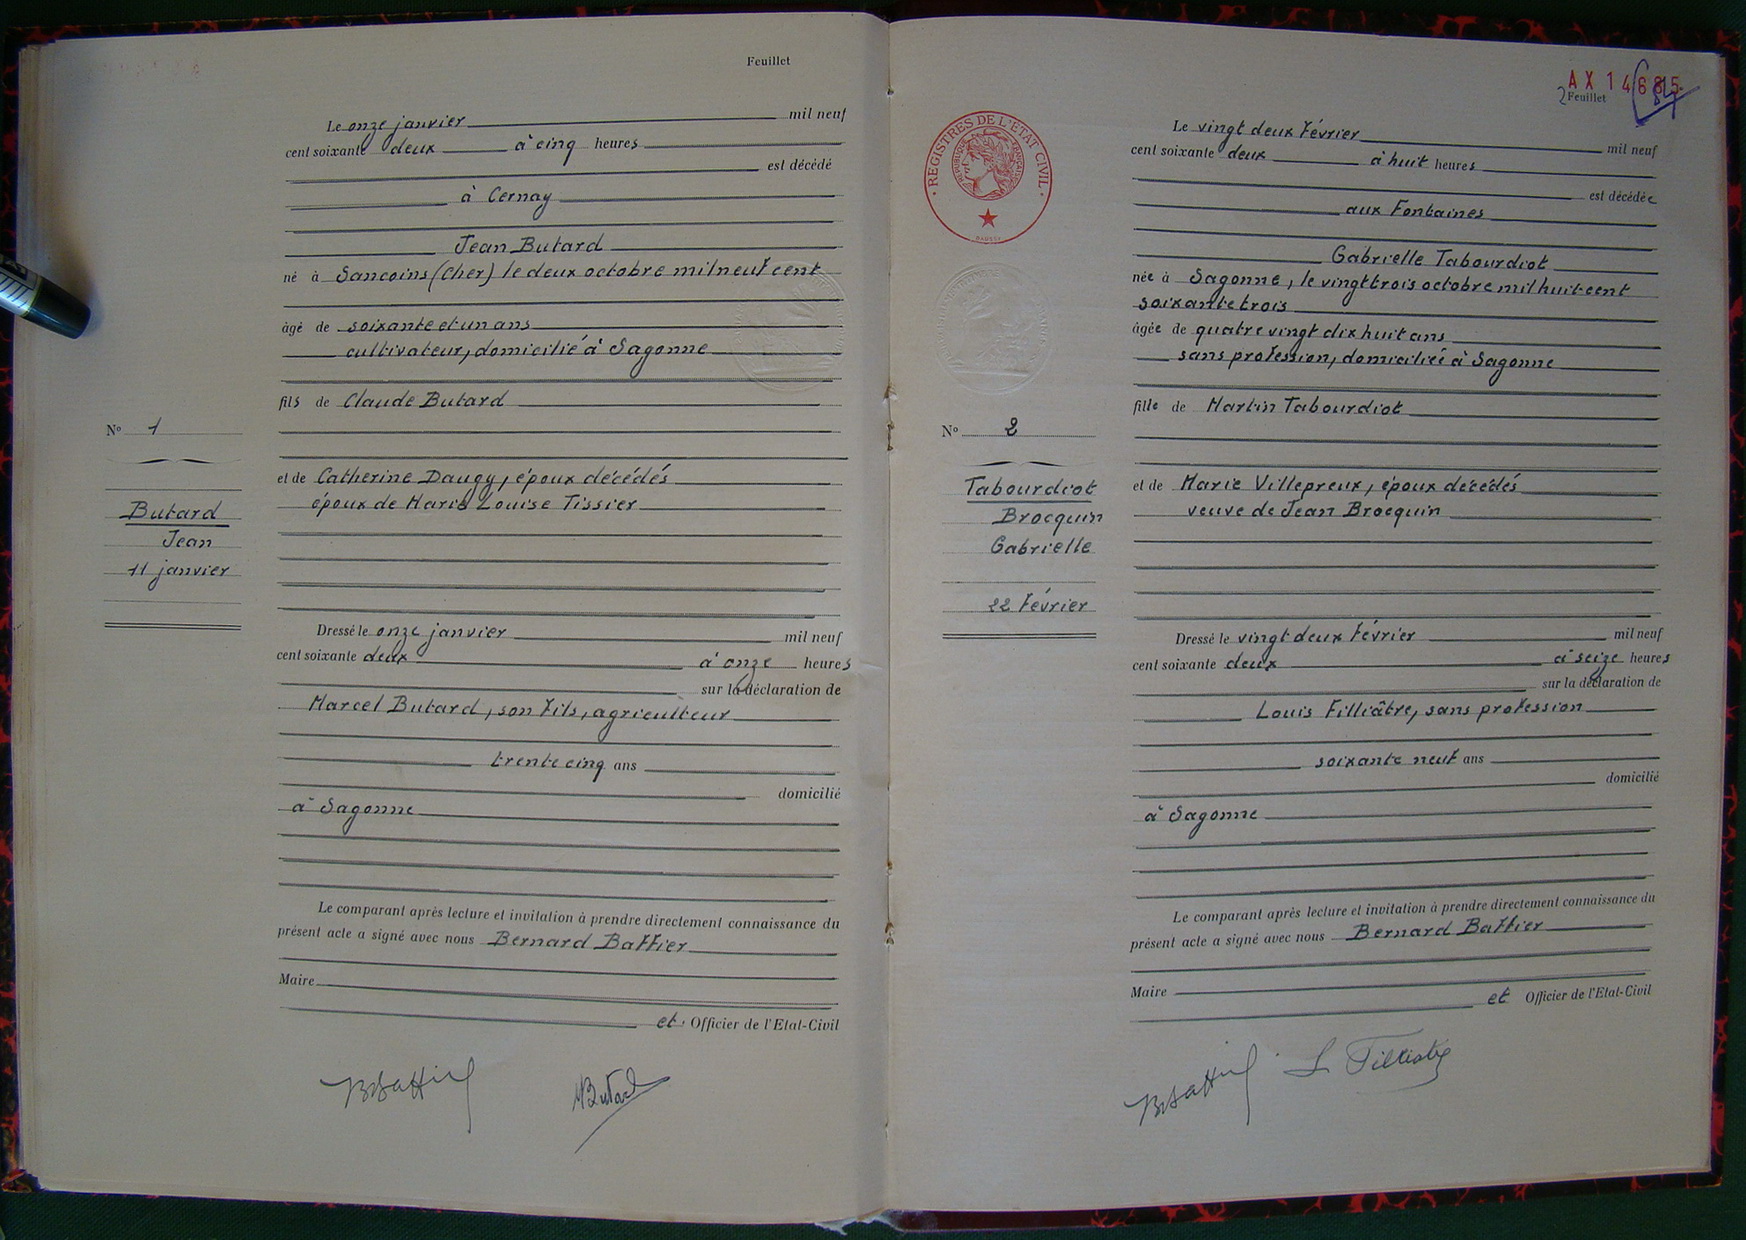 Feuillet
Le onze janvier mil neuf
cent soixante deux à cinq heures
est décédé
à Cernay
Jean Butard
né à Sancoins (Cher) le deux octobre mil neuf cent
âgé de soixante et un ans
cultivateur, domicilié à Sagonne
fils de Claude Butard
N° 1
et de Catherine Daugy, époux décédés
époux de Marie Louise Tissier
Butard
Jean
11 janvier
Dressé le onze janvier mil neuf
cent soixante deux à onze heures
sur la déclaration de
Marcel Butard, son fils, agriculteur
trente cinq ans
domicilié
à Sagonne
Le comparant après lecture et invitation à prendre directement connaissance du
présent acte a signé avec nous Bernard Baffier
Maire
et Officier de l'Etat-Civil
BBaffier
MButard
AX 14685
2 Feuillet
REGISTRES DE L'ETAT CIVIL
Le vingt deux Février mil neuf
cent soixante deux à huit heures
est décédée
aux Fontaines
Gabrielle Tabourdiot
née à Sagonne, le vingt trois octobre mil huit cent
soixante trois
âgée de quatre vingt dix huit ans
sans profession, domiciliée à Sagonne
fille de Martin Tabourdiot
N° 2
et de Marie Villepreux, époux décédés
veuve de Jean Brocquin
Tabourdiot
Brocquin
Gabrielle
22 Février
Dressé le vingt deux Février mil neuf
cent soixante deux à seize heures
sur la déclaration de
Louis Filliâtre, sans profession
soixante neuf ans
domicilié
à Sagonne
Le comparant après lecture et invitation à prendre directement connaissance du
présent acte a signé avec nous Bernard Baffier
Maire
et Officier de l'Etat-Civil
BBaffier
L Filliatre